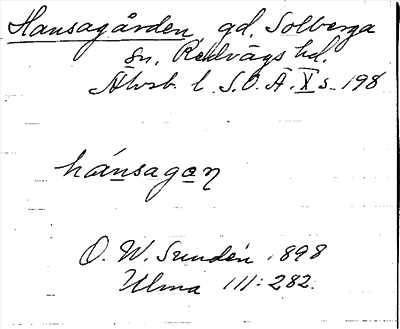 Hansagården, gd. Solberga
sn. Redvägs hd.
Älvsb. l. S.O.Ä. X s. 198
hánsagon
O. W. Sundén 1898
Ulma 111:282.